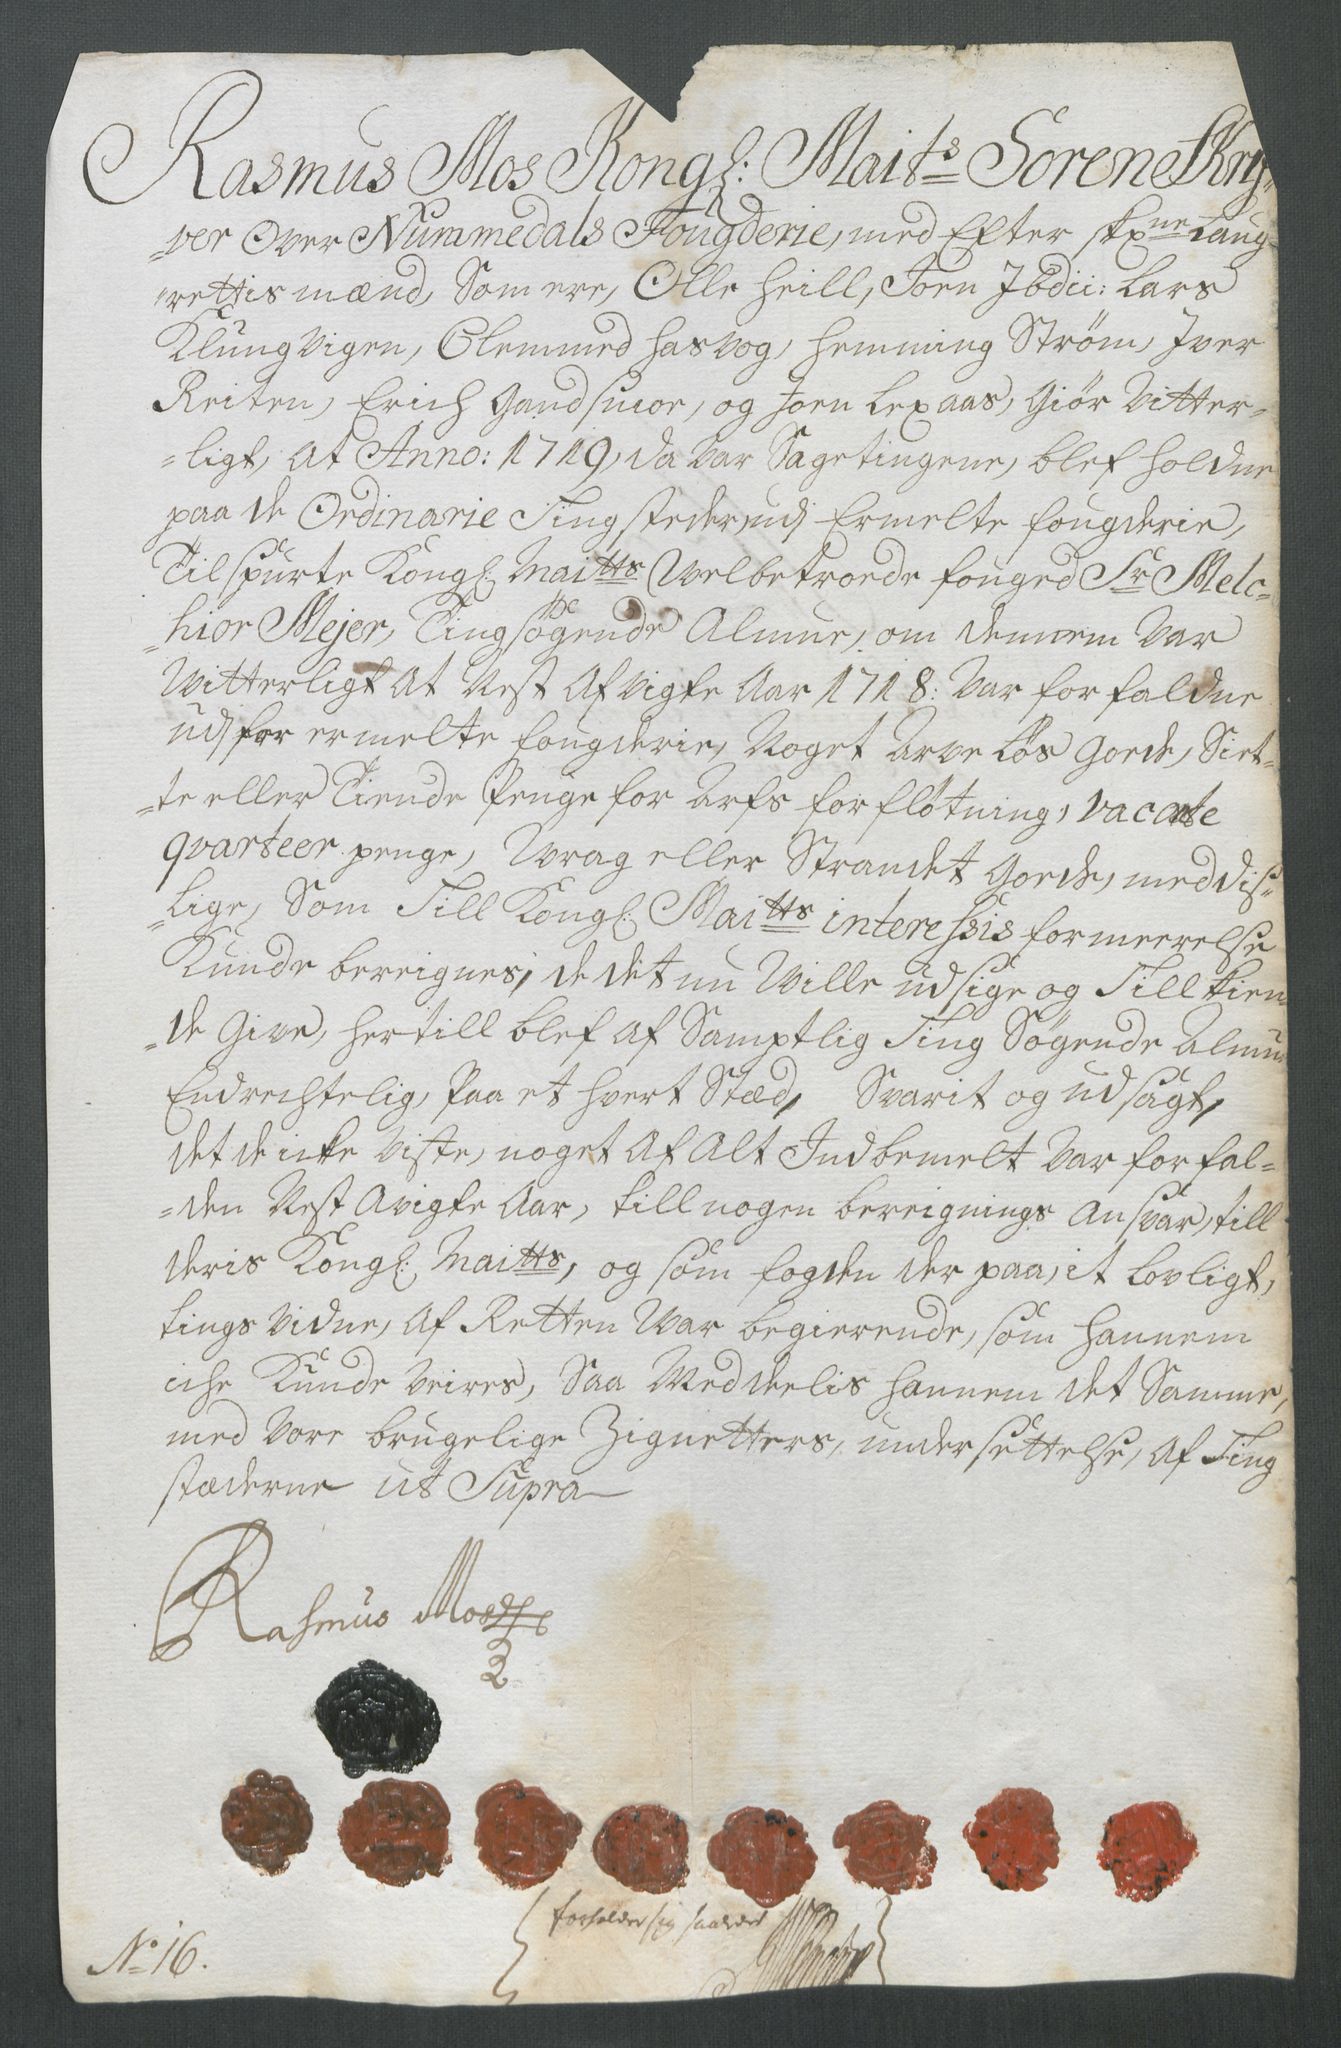 Rasmus Mos Kongl: Maits Sorenskri-
-ver Over Nummedals Fougderie, med Efter skrne Laug-
-rettis mænd, Som ere, Olle Heill, Joen Ibdii: Lars
Klungvigen, Clemmed Hasvog, Hemming Strøm, Iver
Reiten, Erich Gandsmoe, og Joen Lexaas, Giør Vitter-
-ligt, at Anno: 1719, da var Sagetingene, blef holdne
paa de Ordinarie Tingsteder, udj Ermelte fougderie,
Tilspurte Kongl: Maitts Velbetroede fouged Sr Melc-
-hior Mejer, Tingsøgende Almue, om dennem var
Witterligt At Nest Afvigte Aar 1718: var forfaldne
udj for ermelte fougderie, Noget Arve Løs Goeds, Siet-
-te eller Tiende Penge for Arfs forfløtning, vacante
qvarteer penge, Vrag eller Strandet Goeds, med dis-
-lige, Som Till Kongl: Maitts interessis formeerelse
Kunde bereignes, de det nu Ville udsige og Tillkien-
-de Give, hertill blef af Samptlig Ting Søgende Almue
Endrechtelig, Paa et hvert Stæd, Svarit og udsagt,
det de icke viste, noget Af Alt Indbemelt Var forfal-
-den Nest Avigte Aar, till nogen bereignings Ansvar, till
deris Kongl: Maitts, og som fogden der paa, it Lovligt,
tings vidne, Af Retten Var begierende, som hannem
iche Kunde Veires, Saa Meddeelis hannem det Samme,
med Vore brugelige Zignetters, undersettelse, Af Ting
stæderne ut Supra
Rasmus Mos
No 16.
forholder sig saaledes